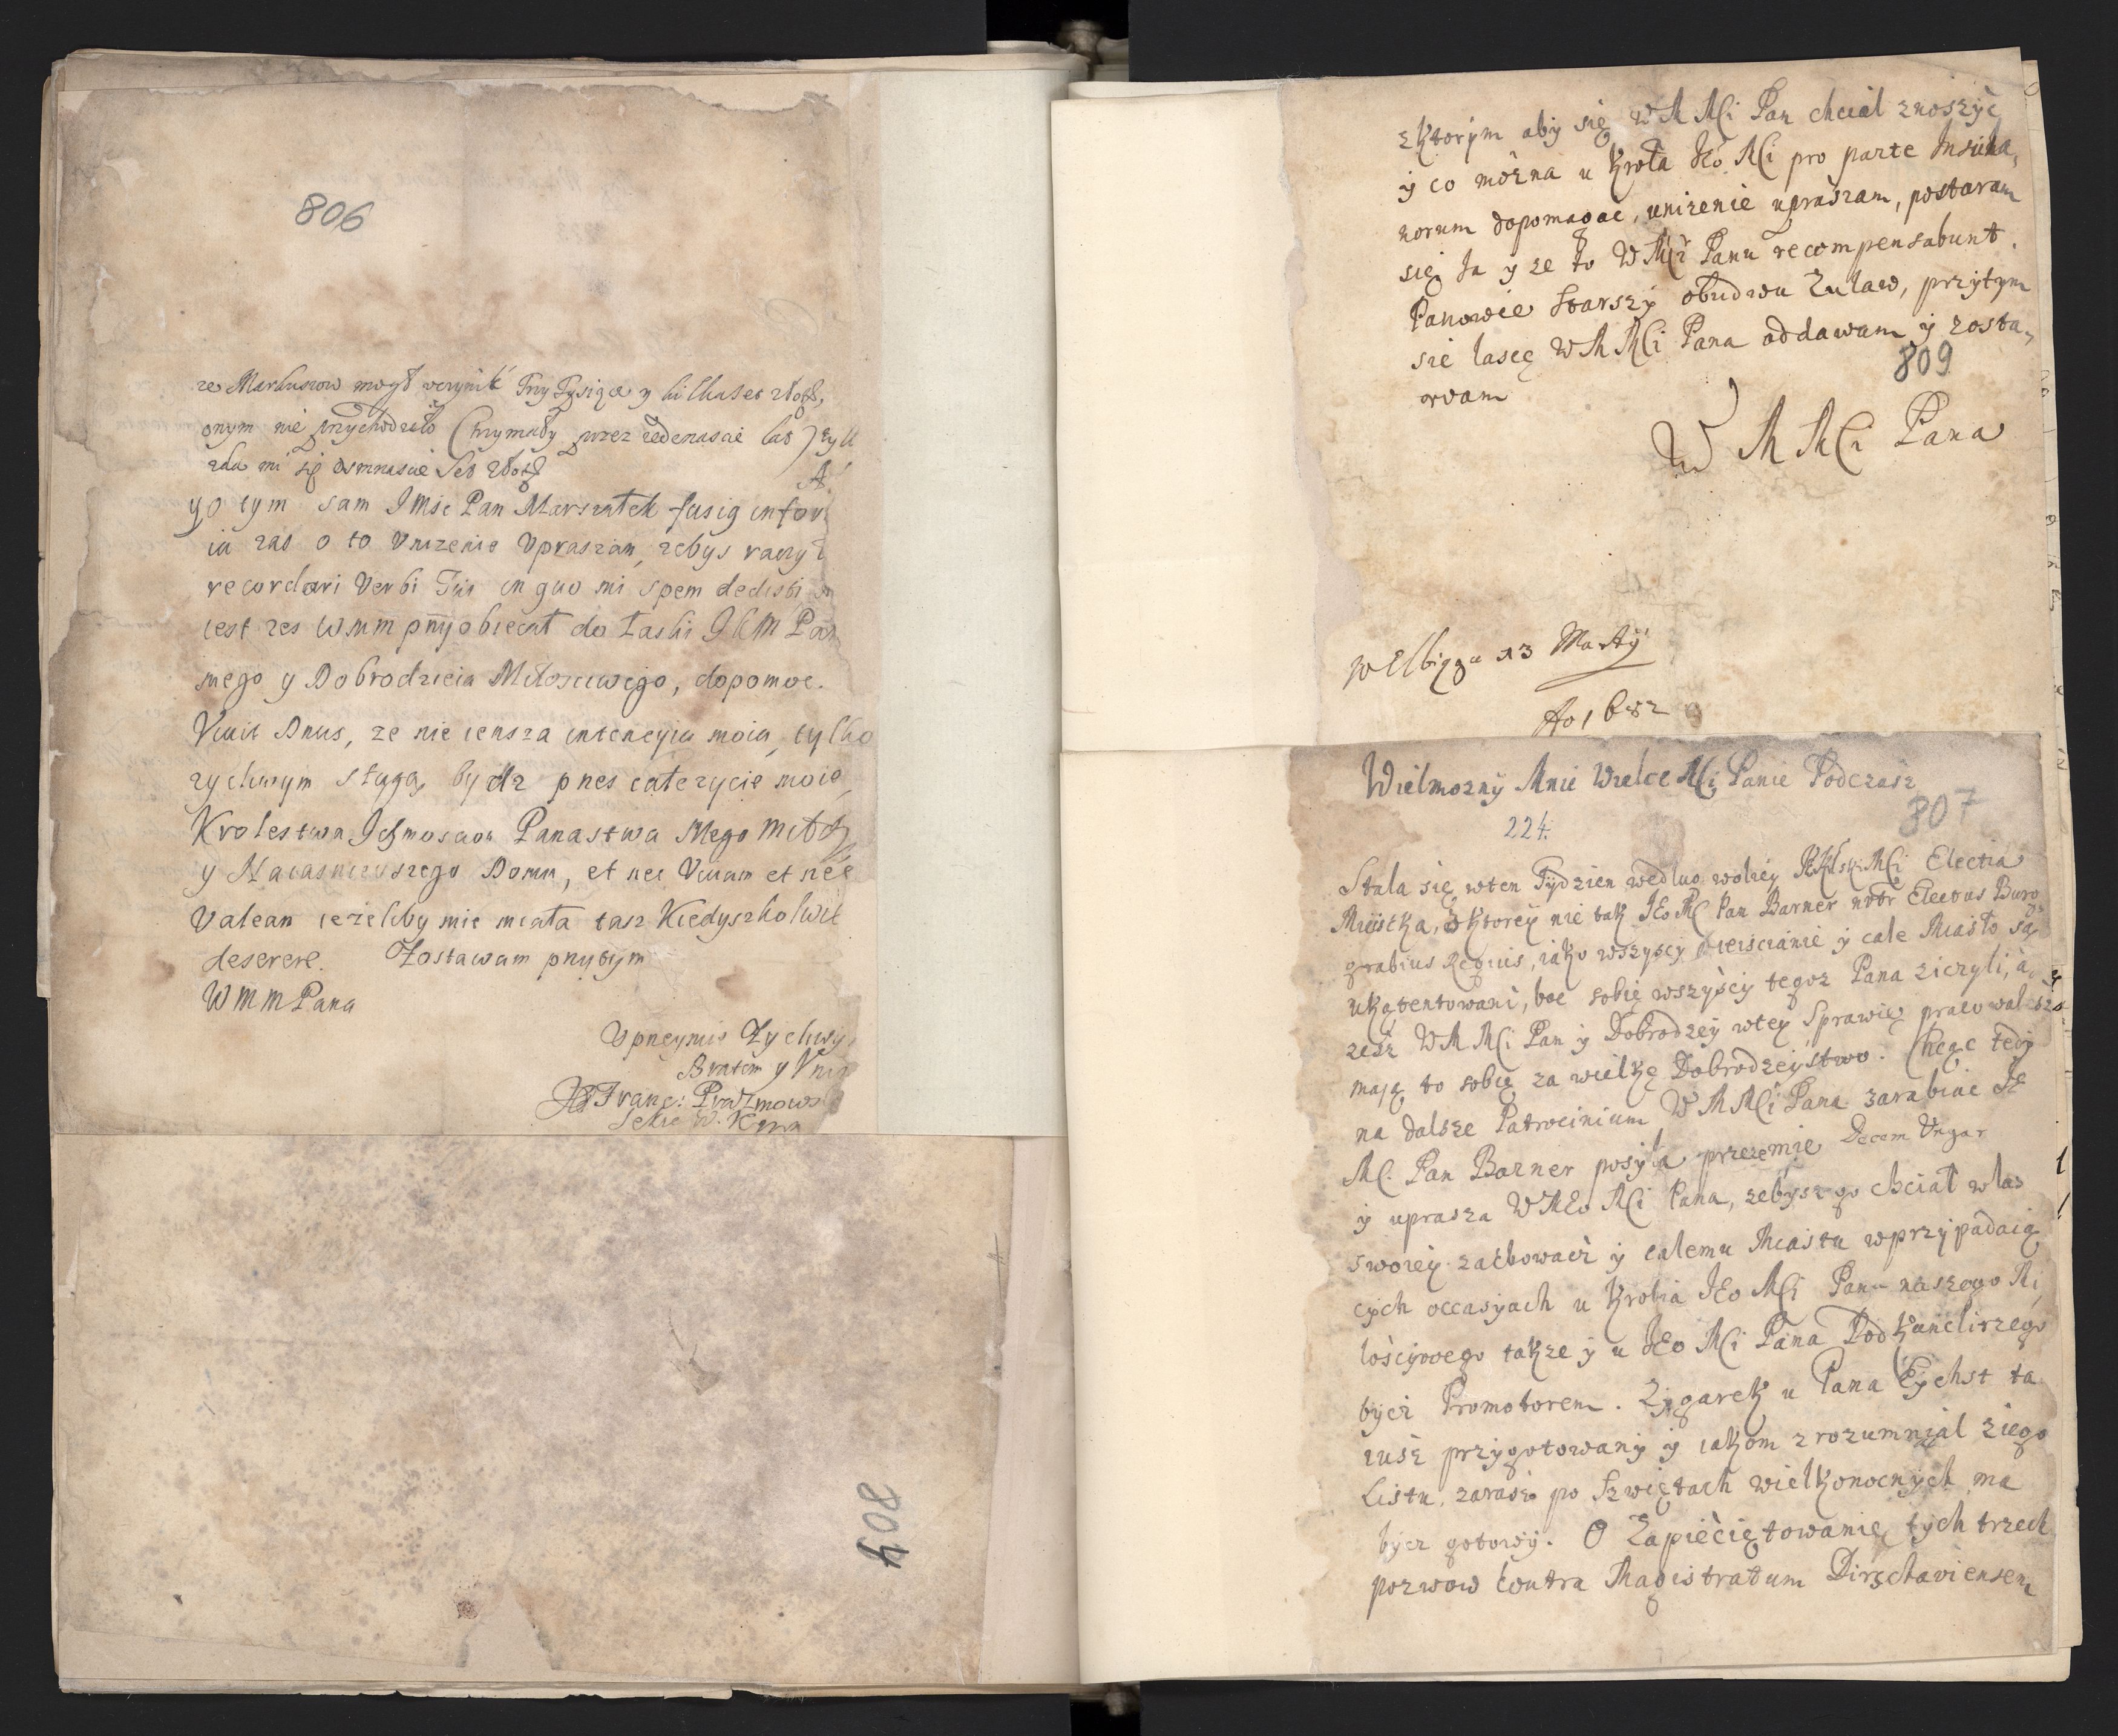 806
ze Markuszow mogł uczynić Trzy Tysiąca y kilkaset złoty,
onym nie przychodzieło (trzymały przez iedenascie lat)
zda mi się osmnascie set złoty
A
yo tym sam Imsc Pan Marszałek fusig infor
ia zas o to Vnizenie Vpraszam, zebys raczył
recordari Verbi Tui in quo mi spem dedisti
iest zes WMM pñ obiecał do Łaski IKM Pa
mego y Dobrodzieia Miłosciwego, dopomoc.
Viuit Dnus, ze nie iensza intencyia moia, tylko
zyclwym sługą bydz pnes całe zycie moie,
Krolestwa Ichmosciow Panastwa Mego
y Naiasnieyszego Domu, et nec Viuam et nec
Valeam iezeliby mie miała tasz Kiedyszkolwie
deserere. Zostawam pnytym
WMMPana
Vpneymie Zyclwy
Bratem y
Franc: Prazmows
Sekre W. K
804
z ktorym aby się WM MCi Pan chciał znoszyć
y co można u Krola Jeo MCi pro parte Insula,
norum dopomagac, unizenie upraszam, postaram
się Ja y ze to WMCi Panu recompensabunt.
Panowie Starszy obudwu Zulaw, przytym
sie lascę WM MCi Pana oddawam y zosta,
wam
809
WM MCi Pana
w Elbiągu 13 Martij
Ao 16
Wielmozny Mnie Wielce MCi Panie Podczasz
807
224.
Stala się wten Tydzien wedluo woliey MCi Electia
Miestka, z ktorey nie tak JEo MC Pan Barner Electus Burg,
grabius Regius, iako wszyscy mieiscianie y cale Miasto są
ukątentowani, boć sobie wszyscy tegoz Pana ziczyli, à,
zesz WM MCi Pan y Dobrodzey wtey Sprawie pracowal
mają to sobie za wielkę Dobrodzeystwo. Chcąc tedy
na dalsze Patrocinium WM MCi Pana zarabiac JE
MC. Pan Barner posyla przezemie Decem Ungar
y uprasza WMEo MCi Pana, zebysz go chciał w las
swoiey zachowacz y calemu Miastu wprzypadaią
cych occasyach u Krolia JEo MCi Pana naszego Mi,
lościwego takze y u JEo MCi Pana Podkanclirzego
bycz Promotorem. Zygarek u Pana Eychst ta
iusz przygotowany y iakom zrozumnial ziego
Listu, zarasz po Szwiętach wielkonocnych ma
bycz gotowy. O Zapieciętowanie tych trzech
pozwow contra Magistratum Dirschaviensem